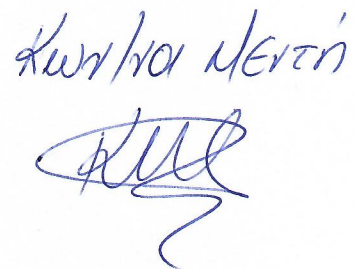 Κων/να Μεντή